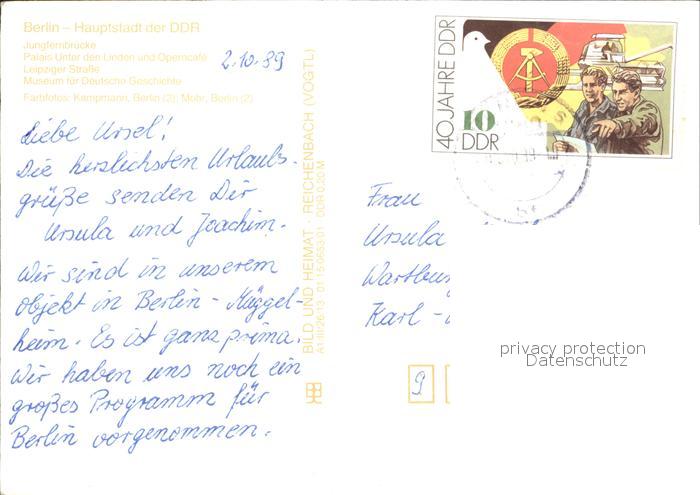 Berlin – Hauptstadt der DDR
Jungfernbrücke
Palais Unter den Linden und Operncafé
Leipziger Straße
Museum für Deutsche Geschichte
Farbfotos: Kampmann, Berlin (2); Mohr, Berlin (2)
2.10.89
Liebe Ursel!
Die herzlichsten Urlaubs-
grüße senden Dir
Ursula und Joachim.
Wir sind in unserem
Objekt in Berlin - Müggel-
heim. Es ist ganz prima.
Wir haben uns noch ein
großes Programm für
Berlin vorgenommen.
BILD UND HEIMAT REICHENBACH (VOGTL)
A1/III/26/13 01 15 0653/01 DDR 0,20 M
40 JAHRE DDR
10
DDR
Frau
Ursula
Wartbur
Karl -
9
privacy protection
Datenschutz